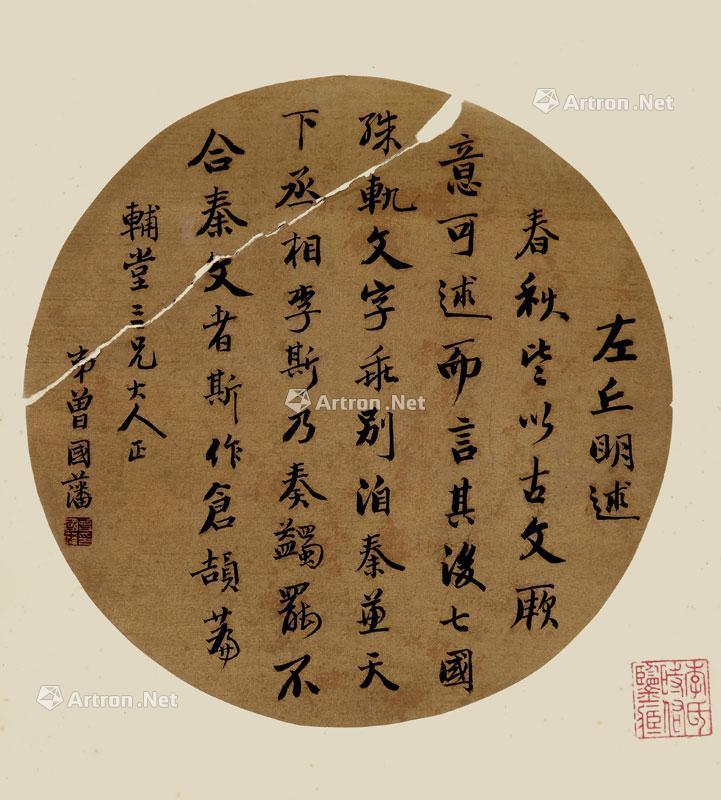 左丘明述
春秋皆以古文厥
意可述而言其後七國
殊軌文字乖別洎秦兼天
下丞相李斯乃奏蠲罷不
合秦文者斯作倉頡篇
輔堂三兄大人正
弟曾國藩
李氏
時代
鑒
Artron.Net
Artron.Net
Artron.Net
Artron.Net